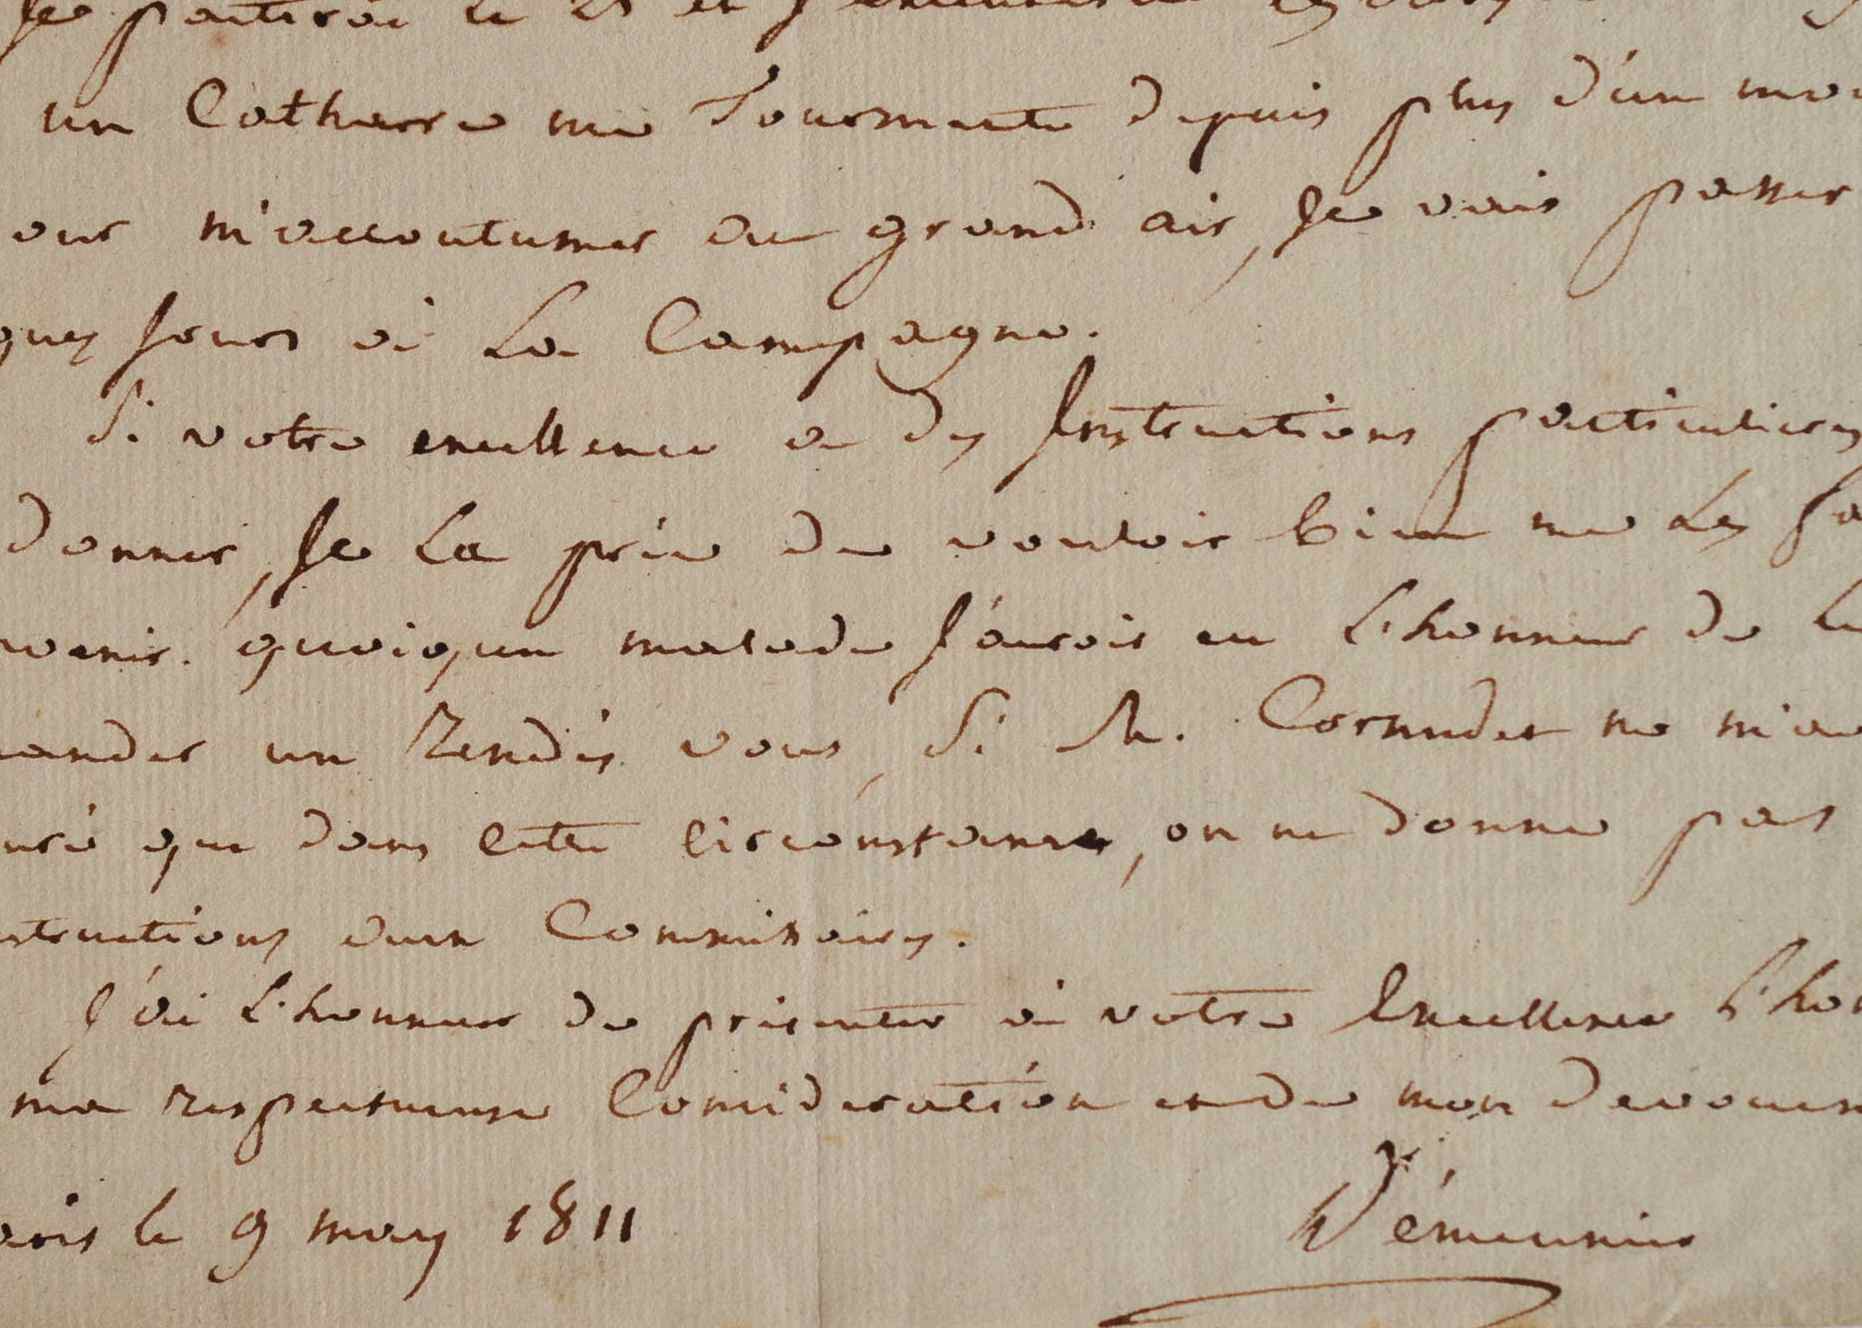 Je partirai le 25 et
un Catharre me Tourmente depuis plus d'un moi
our m'accoutumer au grand air, Je vais passer
ques Jours à La Campagne.
Si votre excellence a des Instructions particulieres
donner, Je La prie de vouloir bien me Les fa
venir. quoique malade J'aurois eu L'honneur de Lu
mander un Rendés vous, Si M. Cornudet ne m'av
uré que dans cette circonstance, on ne donne pas
structions aux Commissaires.
J'ai L'honneur de présenter à votre Excellence L'hom
ma respectueuse Consideration et de mon devouem
aris le 9 may 1811
Démeunier